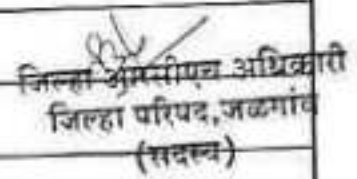 जिल्हा आरसीएच अधिकारी
जिल्हा परिषद,जळगांव
(सदस्य)